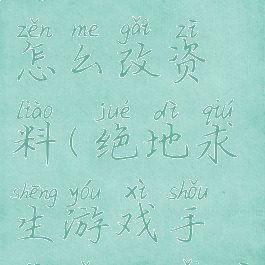 zěn me gǎi zī
怎么改资
liào jué dì qiú
料(绝地求
shēng yóu xì shǒu
生游戏手